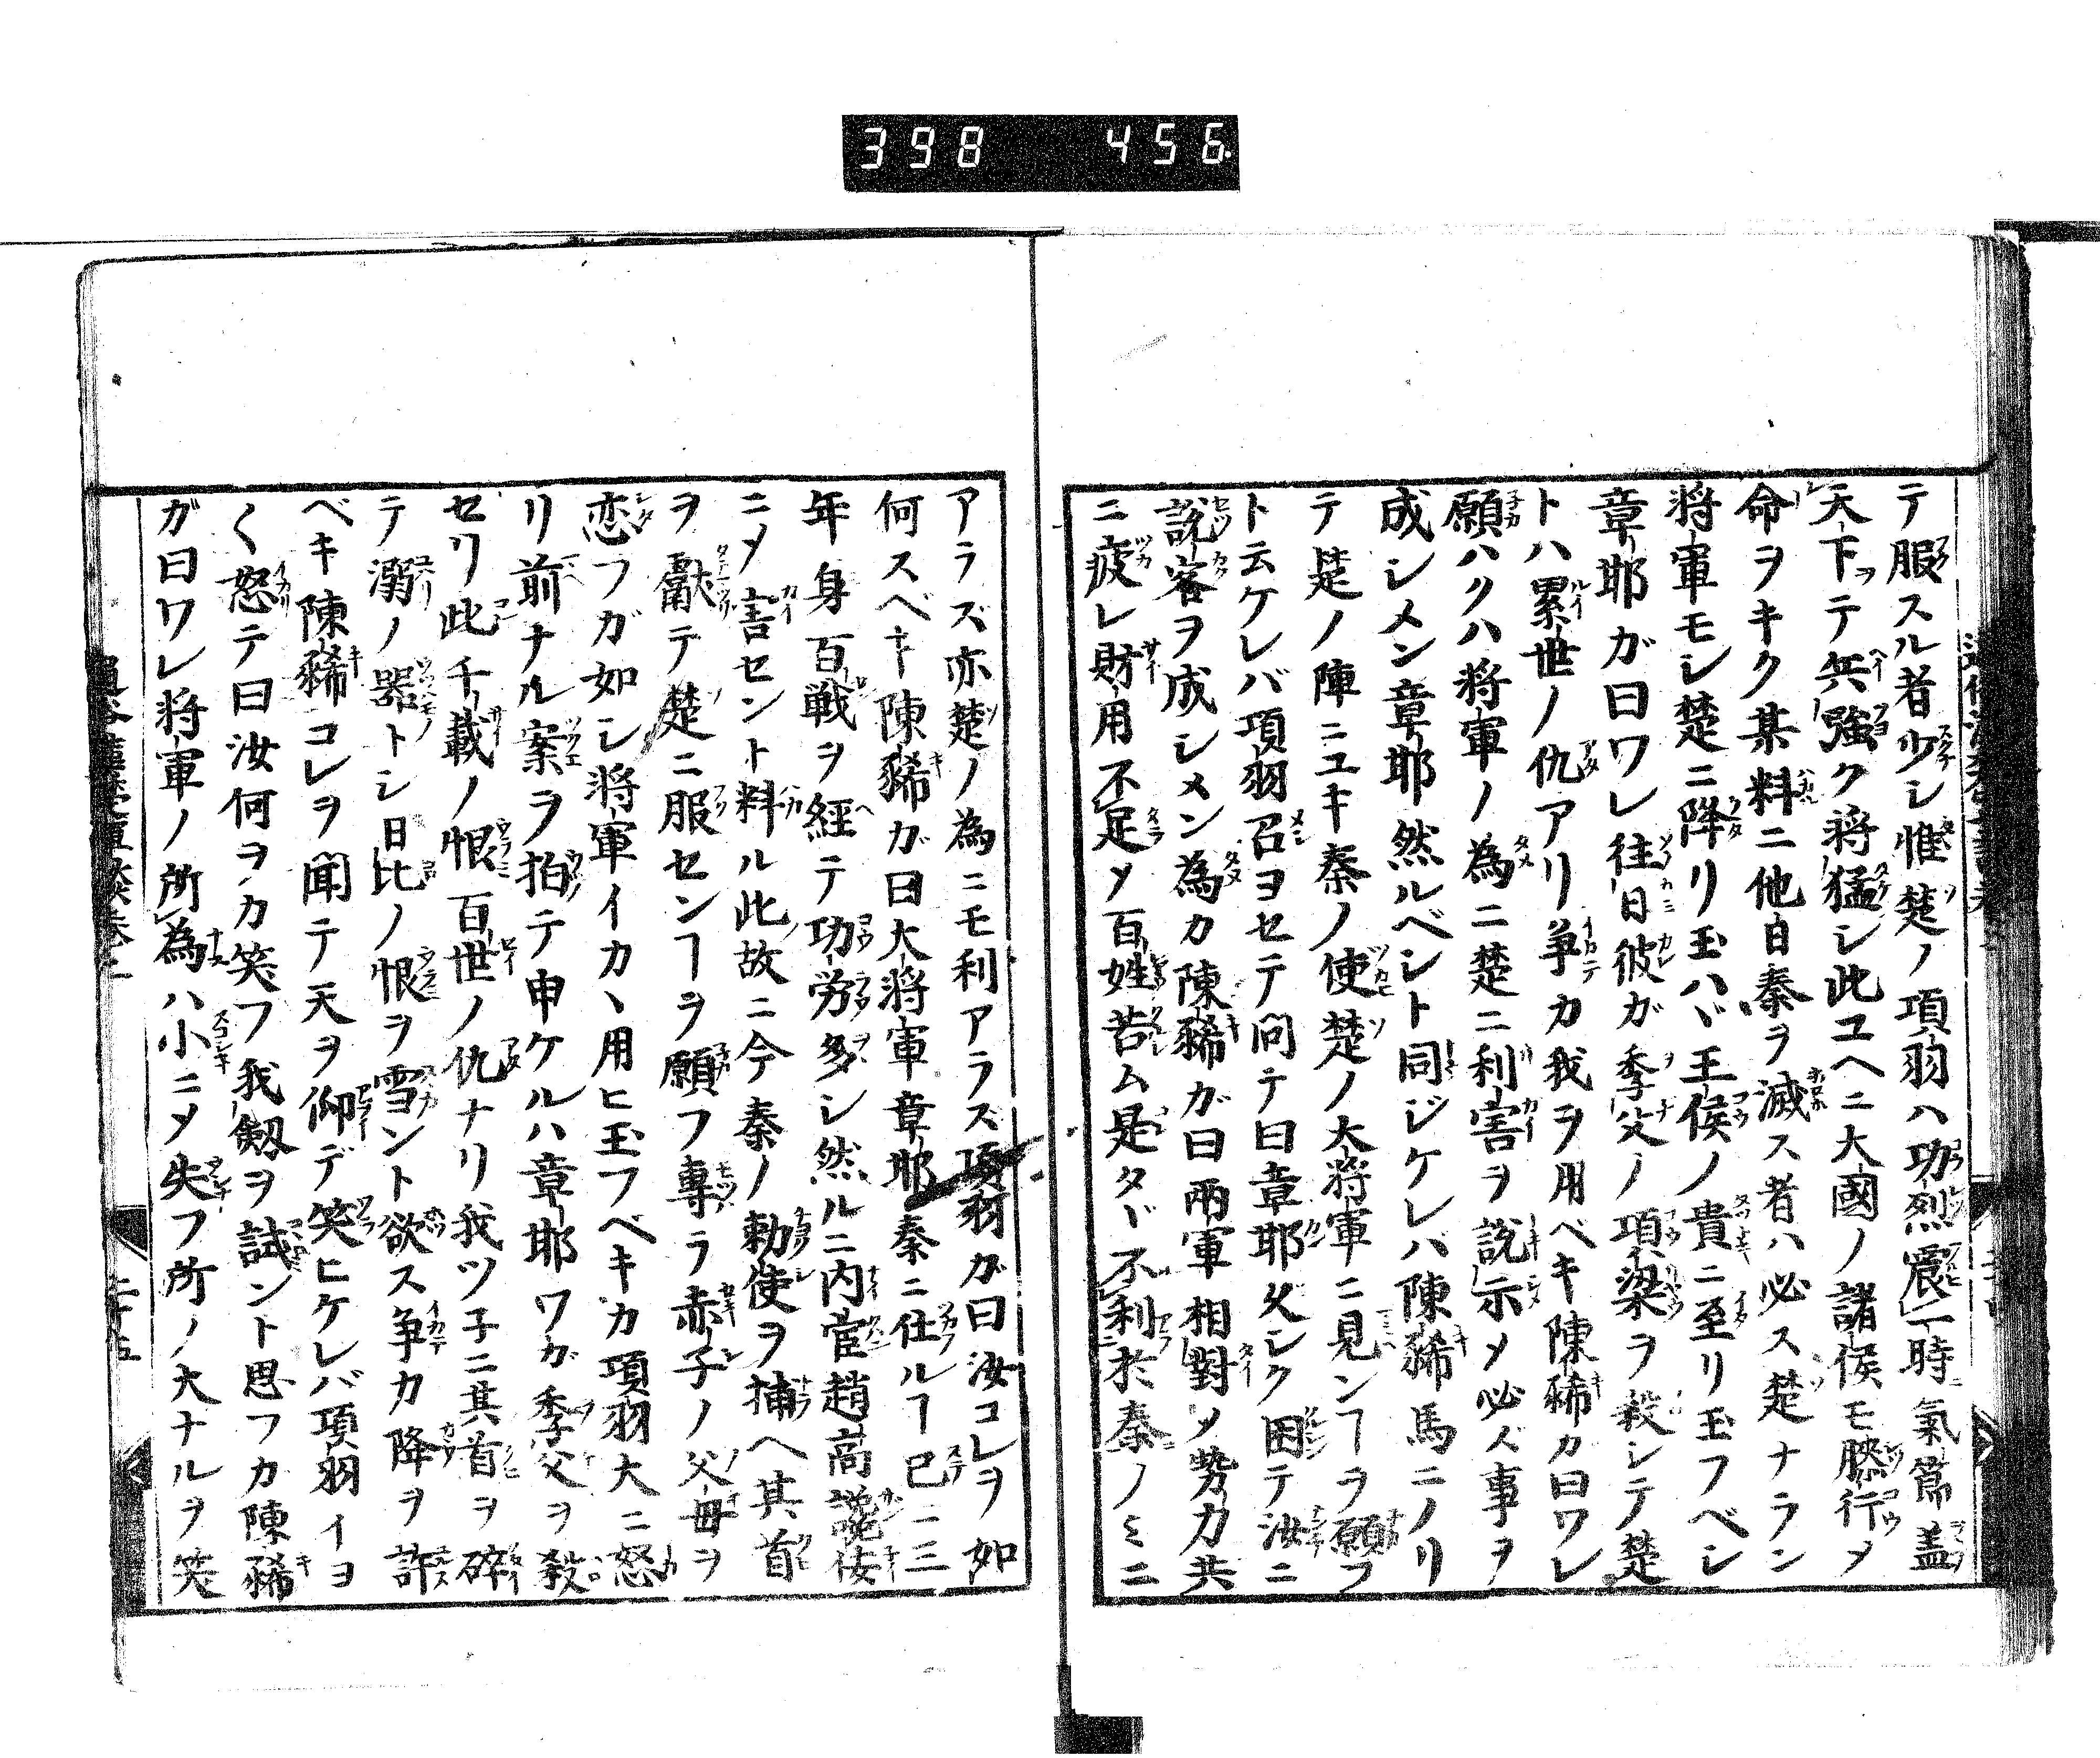 398 456
テ服スル者少シ惟楚ノ項羽ハ功烈震一時氣節盖
天下ヲテ兵強ク将猛シ此ユヘニ大國ノ諸侯モ膝行メ
命ヲキク某料ニ他日秦ヲ滅ス者ハ必ス楚ナラン
将軍モシ楚ニ降リ玉ハヾ王侯ノ貴ニ至リ玉フベシ
章耶ガ曰ワレ往日彼ガ季父ノ項梁ヲ殺シテ楚
トハ累世ノ仇アリ争カ我ヲ用ベキ陳豨カ曰ワレ
願ハクハ将軍ノ為ニ楚ニ利害ヲ説示メ必ス事ヲ
成シメン章耶然ルベシト同ジケレハ陳豨馬ニノリ
テ楚ノ陣ニユキ秦ノ使楚ノ大将軍ニ見ンヿヲ願フ
ト云ケレバ項羽召ヨセテ問テ曰章耶久シク困テ汝ニ
説客ヲ成シメン為カ陳豨ガ曰兩軍相對メ勢力共
ニ疲レ財用不足メ百姓苦ム是タヾ不利於秦ノミニ
アラズ亦楚ノ為ニモ利アラズ項羽ガ曰汝コレヲ如
何スベキ陳豨ガ曰大将軍章耶秦ニ仕ルヿ已ニ三
年身百戦ヲ經テ功労多シ然ルニ内官趙高讒佞
ニメ害セント料ル此故ニ今秦ノ勅使ヲ捕ヘ其首
ヲ獻テ楚ニ服センヿヲ願フ專ラ赤子ノ父母ヲ
恋フガ如シ将軍イカヽ用ヒ玉フベキカ項羽大ニ怒
リ前ナル案ヲ拍テ申ケルハ章耶ワガ季父ヲ殺
セリ此千載ノ恨百世ノ仇ナリ我ツ子ニ其首ヲ碎
テ溺ノ器トシ日比ノ恨ヲ雪ント欲ス争カ降ヲ許
ベキ陳豨コレヲ聞テ天ヲ仰デ笑ヒケレバ項羽イヨ
〱怒テ曰汝何ヲカ笑フ我劔ヲ試ント思フカ陳豨
ガ曰ワレ将軍ノ所為ハ小ニメ失フ所ノ大ナルヲ笑
二十五